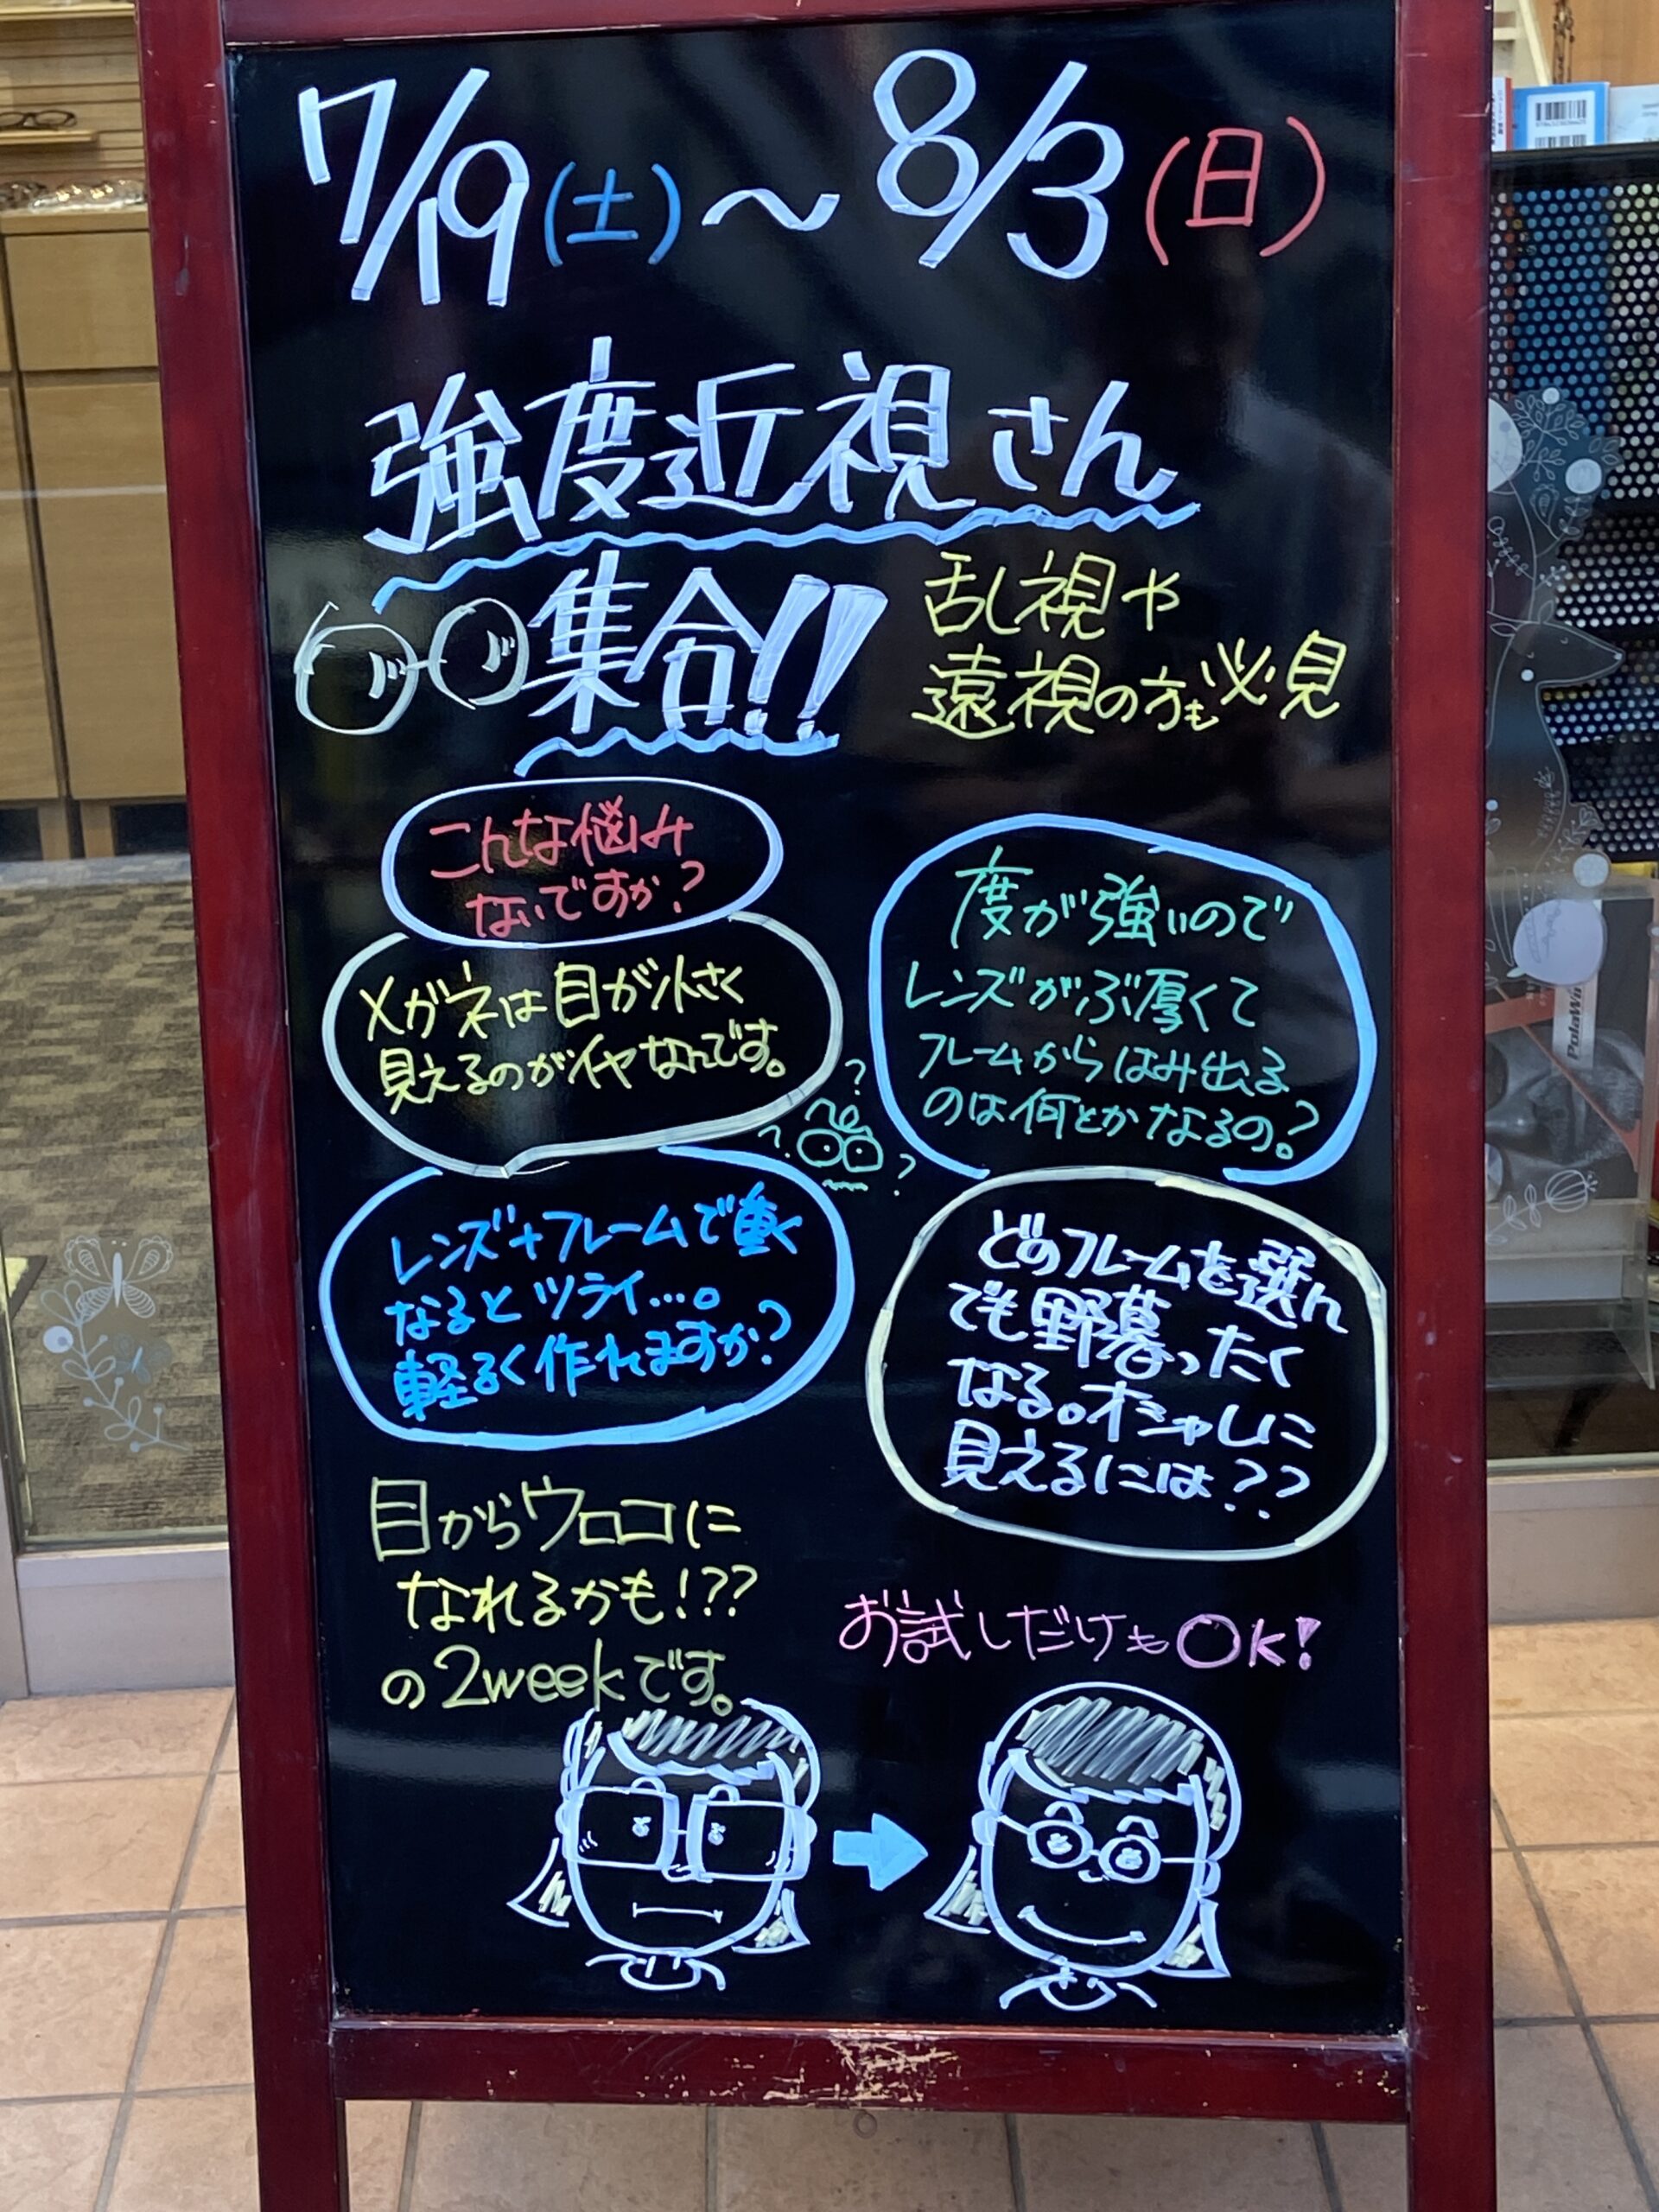 7/19(土)～8/3(日)
強度近視さん
集合!!
乱視や
遠視の方も必見
こんな悩み
ないですか?
メガネは目が小さく
見えるのがイヤなんです。
度が強いので
レンズがぶ厚くて
フレームからはみ出る
のは何とかなるの?
?
?
?
レンズ+フレームで重く
なるとツライ…。
軽るく作れますか?
どのフレームを選ん
でも野暮ったく
なる。オシャレに
見えるには??
目からウロコに
なれるかも!??
の2weekです。
お試しだけもOK!
PolaWin